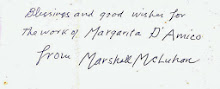 Blessings and good wishes for
the work of Margarita D'Amico
from Marshall McLuhan